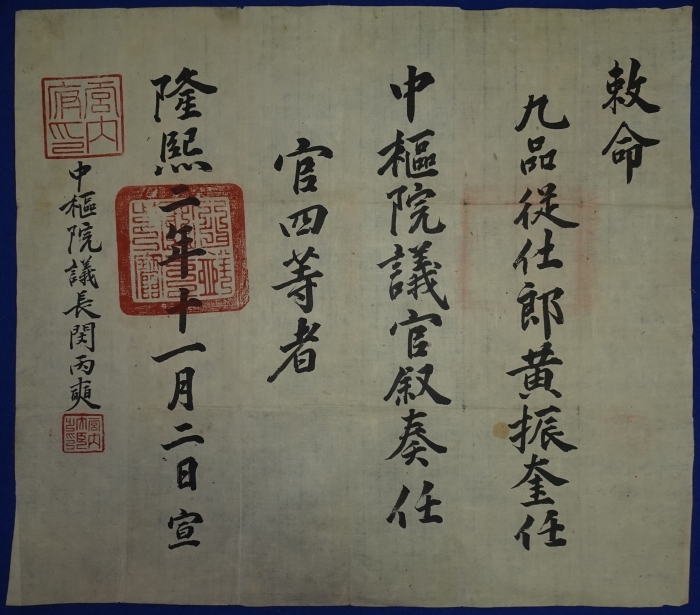 敕命
九品從仕郎黄振奎任
中樞院議官叙奏任
官四等者
隆熙二年十一月二日宣
中樞院議長閔丙奭